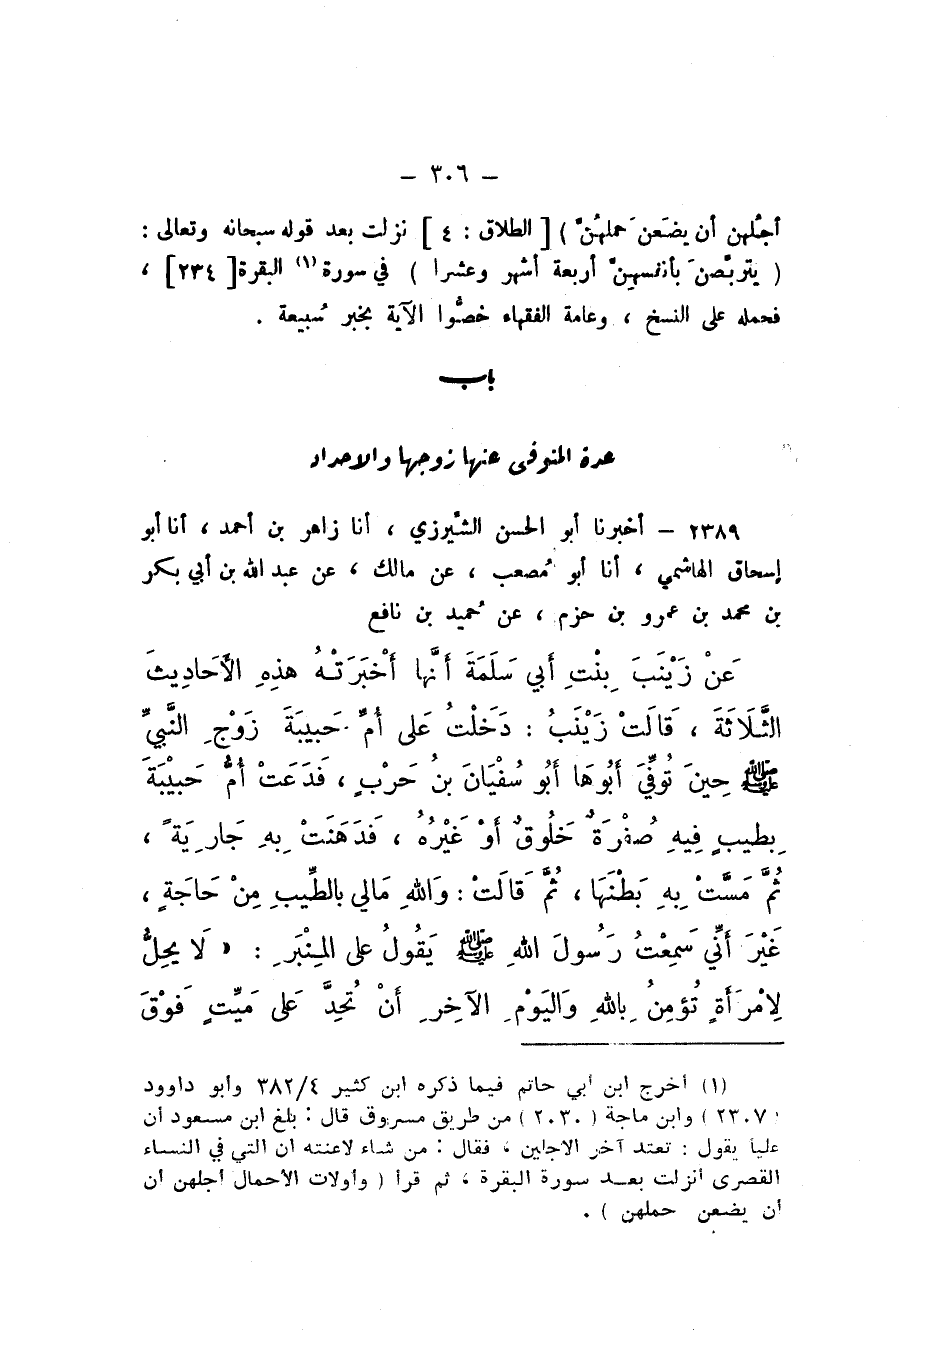 — ٣٠٦ —
أجلُهن أن يضَعن َحملهُنَّ ) [ الطلاق : ٤ ] نزلت بعد قوله سبحانه وتعالى :
( يتربَّصنَ بأنفسهنَّ أربعة أشهر وعشرا ) في سورة (١) البقرة [ ٢٣٤ ] ،
فحمله على النسخ ، وعامة الفقهاء خصُّوا الآية بخبر سُبيعة .
باب
عدة المتوفى عنها زوجها والاحداد
٢٣٨٩ — أخبرنا أبو الحسن الشِّيرزي ، أنا زاهر بن أحمد ، أنا أبو
إسحاق الهاشمي ، أنا أبو مُصعب ، عن مالك ، عن عبد الله بن أبي بكر
بن محمد بن عمرو بن حزم ، عن حُميد بن نافع
عَنْ زَيْنَبَ بِنْتِ أَبي سَلَمَةَ أَنَّها أَخْبَرَتْهُ هذِهِ الأَحَادِيثَ
الثَّلَاثَةَ ، قَالَتْ زَيْنَبُ : دَخَلْتُ عَلى أُمِّ حَبيبَةَ زَوْجِ النَّبيِّ
ﷺ حِينَ تُوفِّيَ أَبُوهَا أَبُو سُفْيَانَ بنُ حَرْبٍ ، فَدَعَتْ أُمُّ حَبيْبَةَ
بِطيبٍ فِيهِ صُفْرَةٌ خَلُوقٌ أَوْ غَيْرُهُ ، فَدَهَنَتْ بِهِ جَارِيَةً ،
ثُمَّ مَسَّتْ بِهِ بَطْنَهَا ، ثُمَّ قَالَتْ : وَاللهِ مَالي بالطِّيبِ مِنْ حَاجَةٍ ،
غَيْرَ أَنِّي سَمِعْتُ رَسُولَ اللهِ ﷺ يَقُولُ على المِنْبَرِ : « لَا يَحِلُّ
لِامْرَأَةٍ تُؤمِنُ بِاللهِ وَاليَوْمِ الآخِرِ أَنْ تُحِدَّ عَلى مَيِّتٍ فَوْقَ
(١) أخرج ابن أبي حاتم فيما ذكره ابن كثير ٣٨٢/٤ وأبو داوود
٢٣٠٧ ) وابن ماجة ( ٢٠٣٠ ) من طريق مسروق قال : بلغ ابن مسعود أن
علياً يقول : تعتد آخر الاجلين ، فقال : من شاء لاعنته ان التي في النساء
القصرى أنزلت بعــد سورة البقرة ، ثم قرأ ( وأولات الأحمال أجلهن أن
أن يضعن حملهن ) .